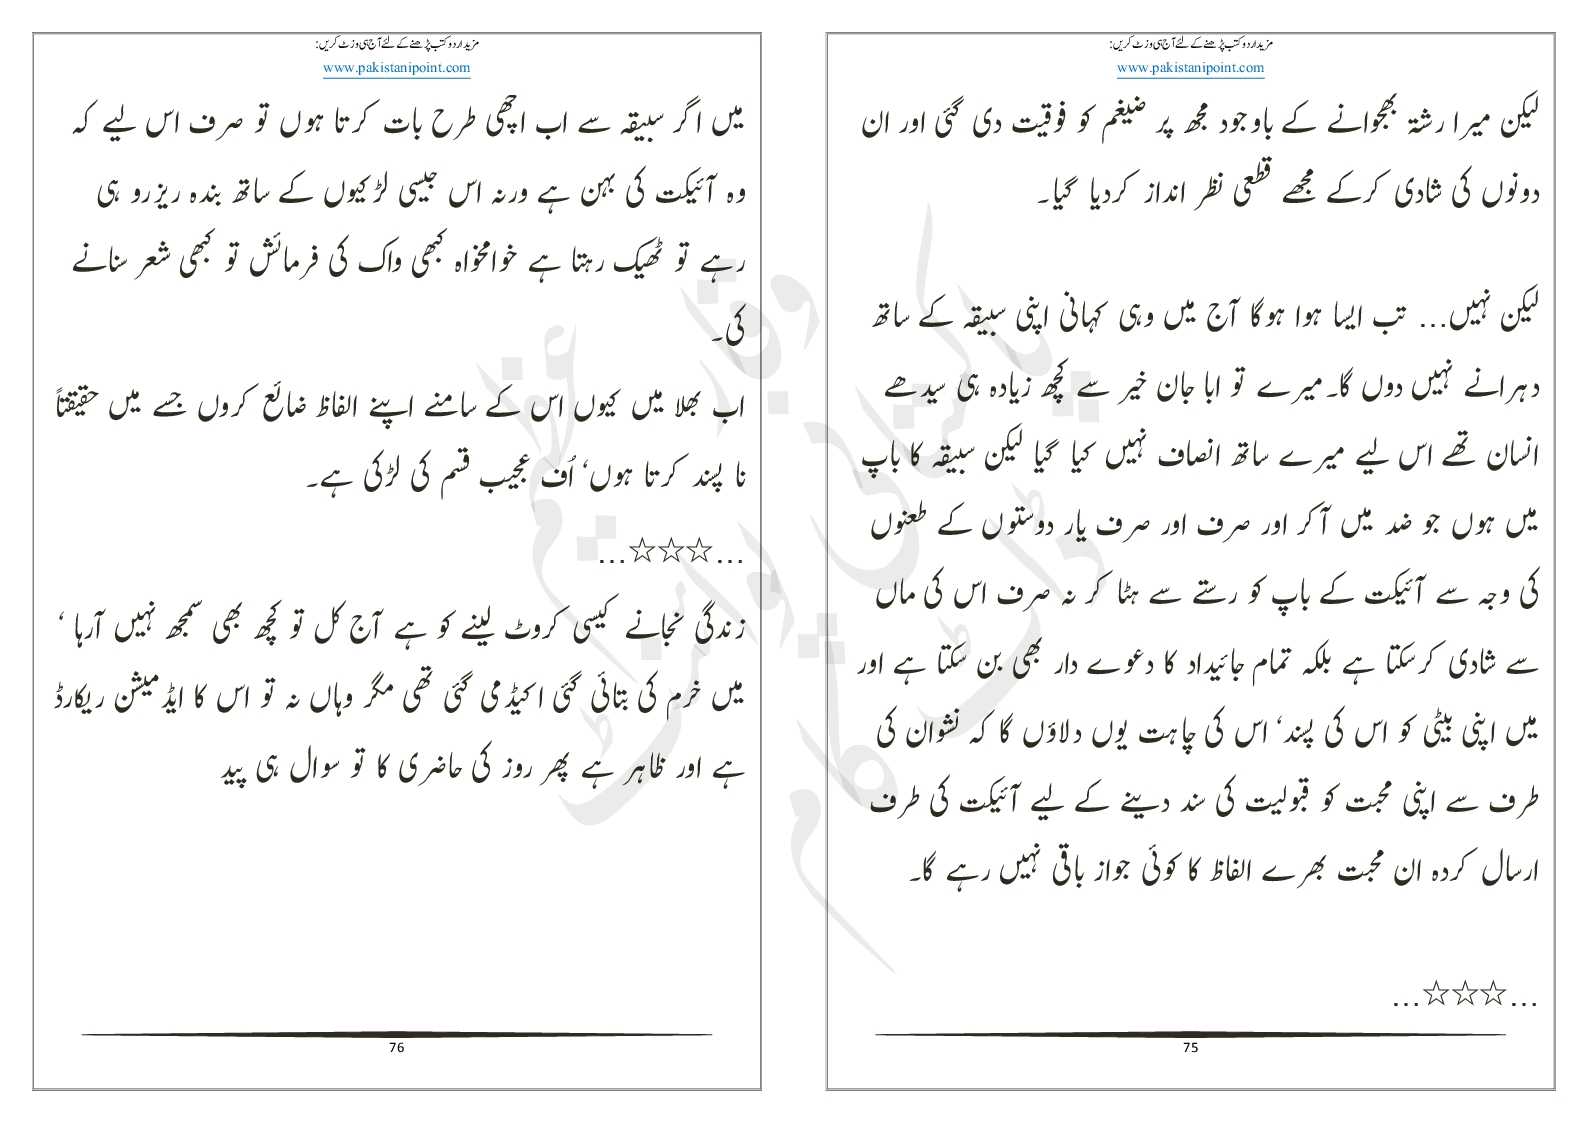 مزید اردو کتب پڑھنے کے لئے آج ہی وزٹ کریں:
www.pakistanipoint.com
لیکن میرا رشتہ بھجوانے کے باوجود مجھ پر ضیغم کو فوقیت دی گئی اور ان
دونوں کی شادی کرکے مجھے قطعی نظر انداز کردیا گیا۔
لیکن نہیں... تب ایسا ہوا ہوگا آج میں وہی کہانی اپنی سبیقہ کے ساتھ
دہرانے نہیں دوں گا۔میرے تو ابا جان خیر سے کچھ زیادہ ہی سیدھے
انسان تھے اس لیے میرے ساتھ انصاف نہیں کیا گیا لیکن سبیقہ کا باپ
میں ہوں جو ضد میں آکر اور صرف اور صرف یار دوستوں کے طعنوں
کی وجہ سے آئیکت کے باپ کو رستے سے ہٹا کر نہ صرف اس کی ماں
سے شادی کرسکتا ہے بلکہ تمام جائیداد کا دعوے دار بھی بن سکتا ہے اور
میں اپنی بیٹی کو اس کی پسند‘ اس کی چاہت یوں دلاؤں گا کہ نشوان کی
طرف سے اپنی محبت کو قبولیت کی سند دینے کے لیے آئیکت کی طرف
ارسال کردہ ان محبت بھرے الفاظ کا کوئی جواز باقی نہیں رہے گا۔
...☆☆☆...
75
مزید اردو کتب پڑھنے کے لئے آج ہی وزٹ کریں:
www.pakistanipoint.com
میں اگر سبیقہ سے اب اچھی طرح بات کرتا ہوں تو صرف اس لیے کہ
وہ آئیکت کی بہن ہے ورنہ اس جیسی لڑکیوں کے ساتھ بندہ ریزرو ہی
رہے تو ٹھیک رہتا ہے خوامخواہ کبھی واک کی فرمائش تو کبھی شعر سنانے
کی۔
اب بھلا میں کیوں اس کے سامنے اپنے الفاظ ضائع کروں جسے میں حقیقتاً
نا پسند کرتا ہوں‘ اُف عجیب قسم کی لڑکی ہے۔
...☆☆☆...
زندگی نجانے کیسی کروٹ لینے کو ہے آج کل تو کچھ بھی سمجھ نہیں آرہا ‘
میں خرم کی بتائی گئی اکیڈمی گئی تھی مگر وہاں نہ تو اس کا ایڈمیشن ریکارڈ
ہے اور ظاہر ہے پھر روز کی حاضری کا تو سوال ہی پید
76
پاکستانی پوائنٹ ڈاٹ کام